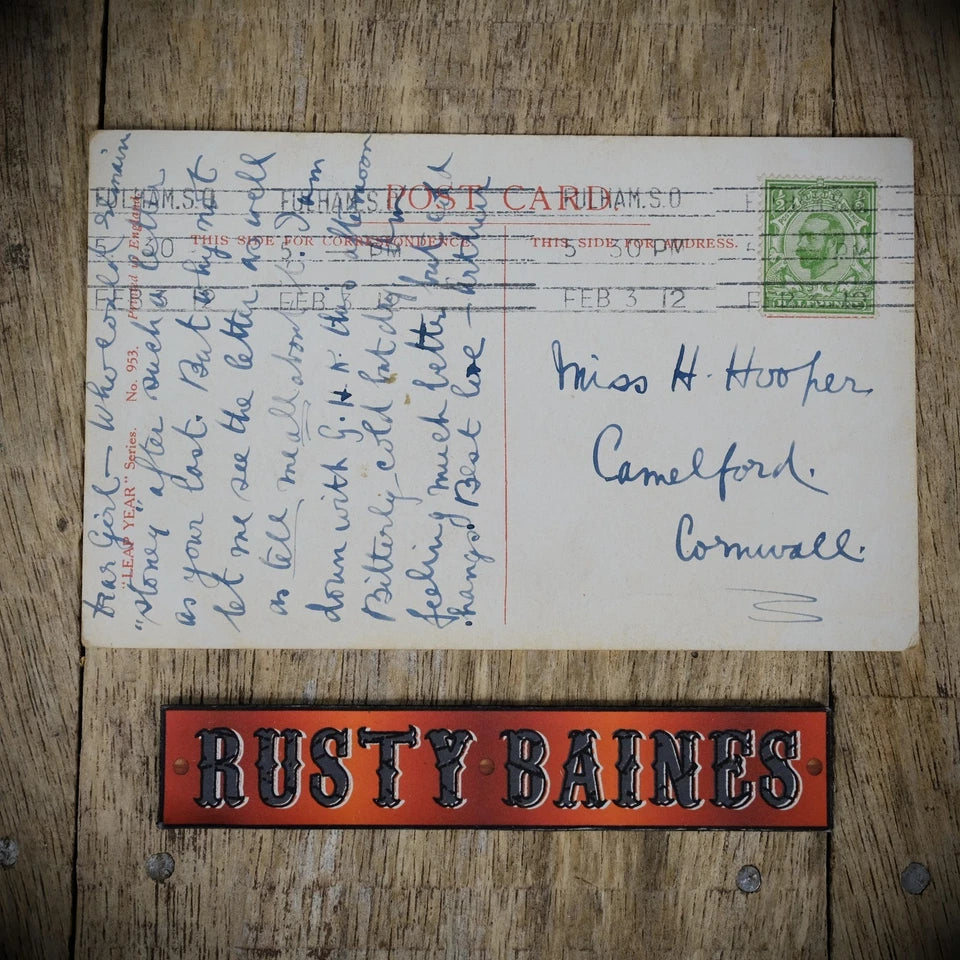 POST CARD.
THIS SIDE FOR CORRESPONDENCE
THIS SIDE FOR ADDRESS.
FULHAM.S.O FULHAM.S.O FULHAM.S.O
5 30 PM 5 30 PM
FEB 3 12 FEB 3 12
HALFPENNY
"LEAP YEAR" Series. No. 953. Printed in England
Dear Girl - Who could remain
"stoney" after such a letter
as your last. But why not
let me see the letter as well
as tell me all about it. I am
down with G. H. K. this afternoon
Bitterly cold but dry
feeling much better but cold
hangs. Best love - Arthur
Miss H. Hooper
Camelford.
Cornwall.
RUSTY BAINES